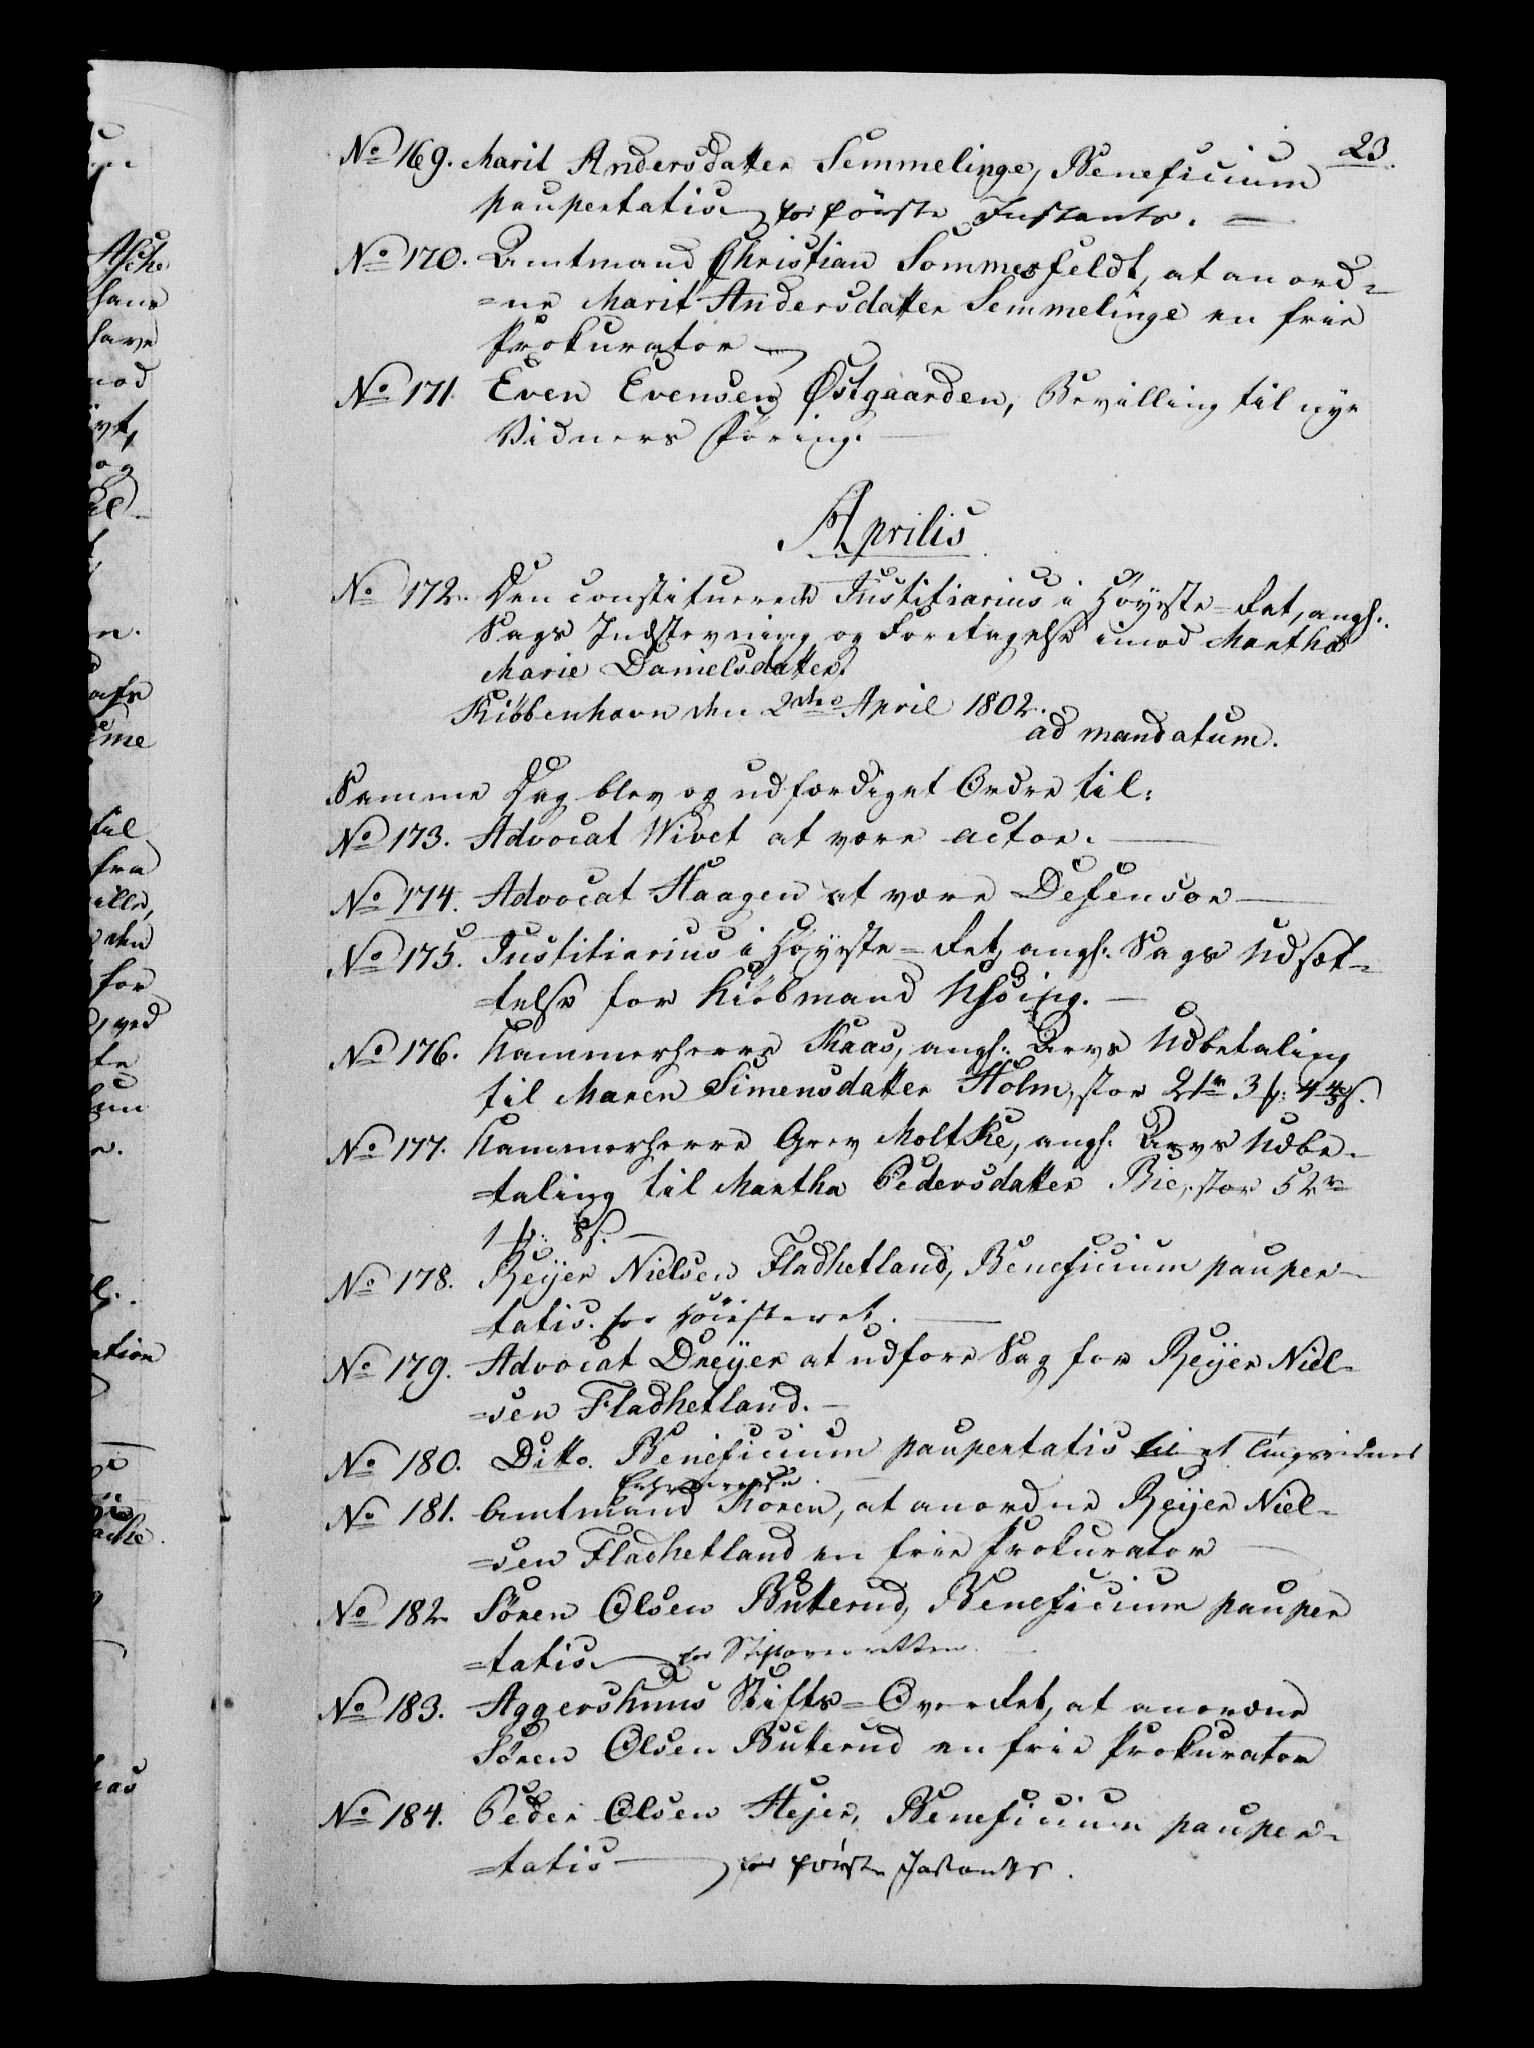 23.
No 169. Marit Andersdatter Semmelinge, Beneficium
paupertatis for første Instants.
No 170. Amtmand Christian Sommerfeldt, at anord=
=ne Marit Andersdatter Semmelinge en frie
Prokurator
No 171. Even Evensen Østgaarden, Bevilling til nye
Vidners Føring.
Aprilis
No 172. Den constituerede Justitiarius i Høyeste=Ret, angl.
Sags Indstevning og Foretagelse imod Martha
Marie Danielsdatter.
Kiöbenhavn den 2den April 1802.
ad mandatum.
Samme Dag blev og udfærdiget Ordre til:
No 173. Advocat Wivet at være actor.
No 174. Advocat Haagen at være Defensor
No 175. Justitiarius i Høyeste=Ret, angl. Sags Udsæt=
=telse for Kiöbmand
No 176. Kammerherre Kaas, angl. Arvs Udbetaling
til Maren Simensdatter Holm, stor 21
No 177. Kammerherre Grev Moltke, angl. Arvs Udbe=
=taling til Martha Pedersdatter Bie, stor 52
1 8
No 178. Reijer Nielsen Fladhetland, Beneficium pauper=
tatis. for Høiesteret.
No 179. Advocat Dreÿer at udføre Sag for Reijer Niel=
=sen Fladhetland.
No 180. Ditto. Beneficium paupertatis til et Tingsvidnes
Erhvervelse.
No 181. Amtmand Koren, at anordne Reijer Niel=
=sen Fladhetland en frie Prokurator
No 182. Sören Olsen Butterud, Beneficium pauper
=tatis for Stiftsoverretten
No 183. Aggershuus Stifts=Over Ret, at anordne
Sören Olsen Butterud en frie Prokurator
No 184. Peder Olsen Hejer, Beneficium pauper=
=tatis for første Instants.